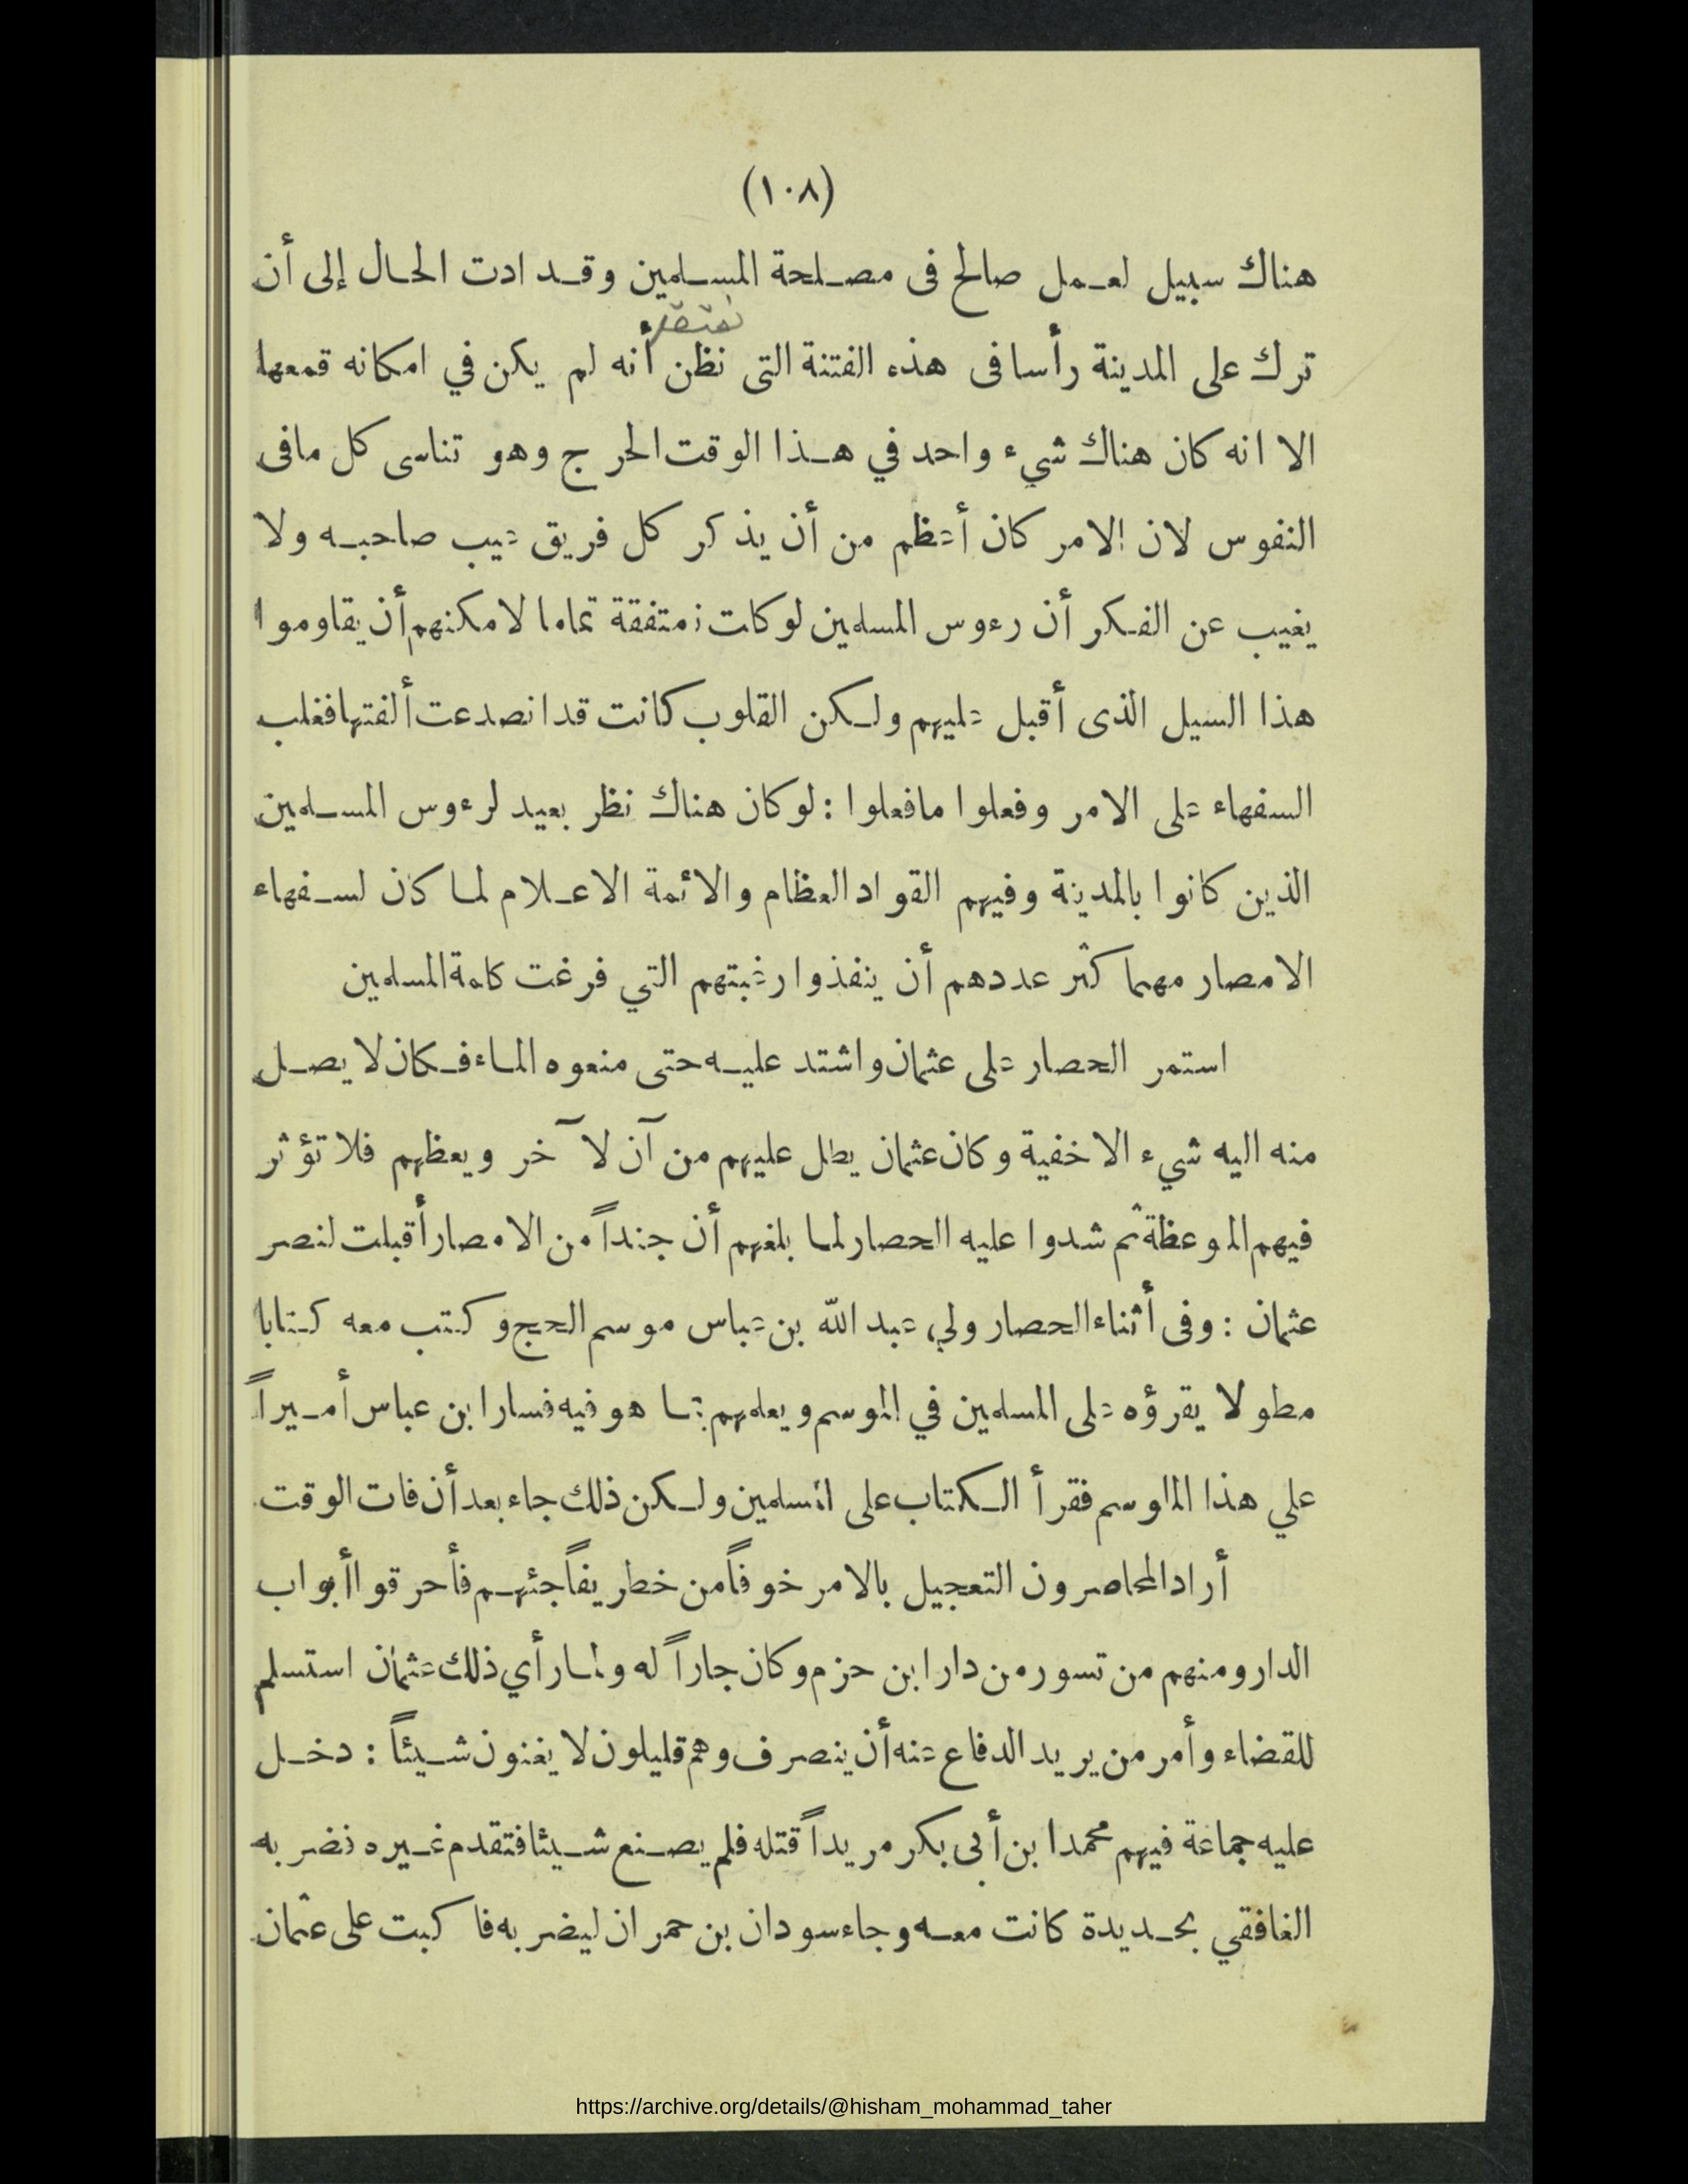 (١٠٨)
هناك سبيل لعمل صالح فى مصلحة المسلمين وقد ادت الحال إلى أن
ترك على المدينة رأسا فى هذه الفتنة التى نظن أنه لم يكن في امكانه قمعها
الا انه كان هناك شيء واحد في هذا الوقت الحرج وهو تناسى كل مافى
النفوس لان الامر كان أعظم من أن يذكر كل فريق عيب صاحبه ولا
يغيب عن الفكر أن رءوس المسلمين لو كانت متفقة تماما لامكنهم أن يقاوموا
هذا السيل الذى أقبل عليهم ولكن القلوب كانت قد انصدعت ألفتها فغلب
السفهاء على الامر وفعلوا مافعلوا : لو كان هناك نظر بعيد لرءوس المسلمين
الذين كانوا بالمدينة وفيهم القواد العظام والائمة الاعلام لما كان لسفهاء
الامصار مهما كثر عددهم أن ينفذوا رغبتهم التي فرغت كلمة المسلمين
استمر الحصار على عثمان واشتد عليه حتى منعوه الماء فكان لا يصل
منه اليه شيء الا خفية وكان عثمان يطل عليهم من آن لآخر ويعظهم فلا تؤثر
فيهم الموعظة ثم شدوا عليه الحصار لما بلغهم أن جنداً من الامصار أقبلت لنصر
عثمان : وفى أثناء الحصار ولي عبد الله بن عباس موسم الحج وكتب معه كتابا
مطولا يقرؤه على المسلمين في الموسم ويعلمهم بما هو فيه فسار ابن عباس أميراً
علي هذا الماوسم فقرأ الكتاب على المسلمين ولكن ذلك جاء بعد أن فات الوقت
أراد المحاصرون التعجيل بالامر خوفاً من خطر يفاجئهم فأحرقوا أبواب
الدار ومنهم من تسور من دار ابن حزم وكان جاراً له ولما رأي ذلك عثمان استسلم
للقضاء وأمر من يريد الدفاع عنه أن ينصرف وهم قليلون لا يغنون شيئاً : دخل
عليه جماعة فيهم محمدا بن أبى بكر مريداً قتله فلم يصنع شيئا فتقدم غيره فضربه
الغافقي بحديدة كانت معه وجاء سودان بن حمران ليضربه فاكبت على عثمان
https://archive.org/details/@hisham_mohammad_taher